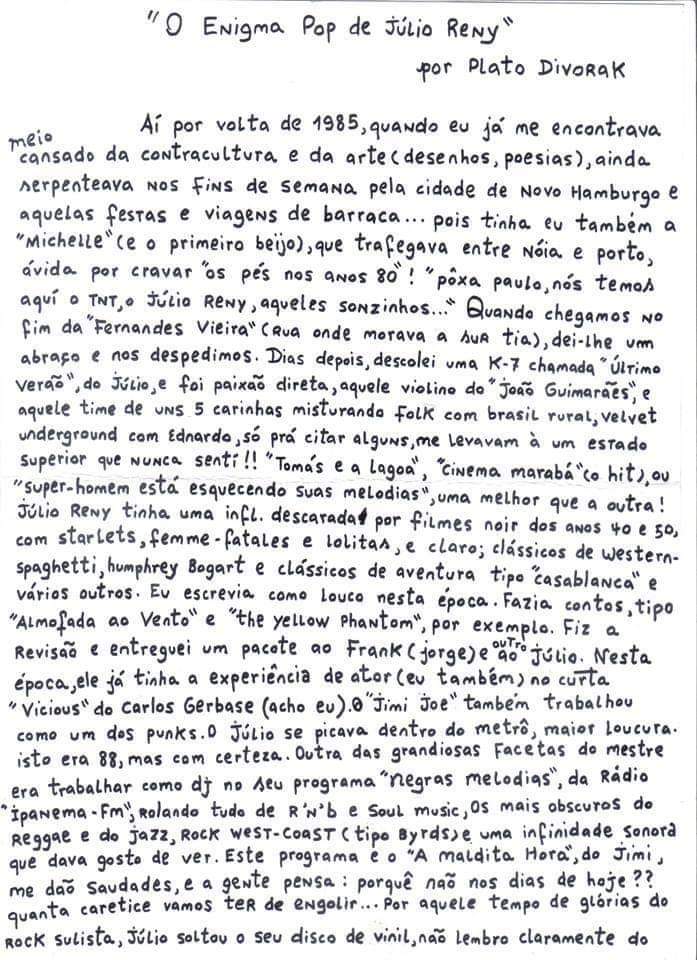 "O Enigma Pop de Júlio Reny"
por Plato Divorak
Aí por volta de 1985, quando eu já me encontrava
meio
cansado da contracultura e da arte (desenhos, poesias), ainda
serpenteava nos fins de semana pela cidade de Novo Hamburgo e
aquelas festas e viagens de barraca... pois tinha eu também a
"Michelle" (e o primeiro beijo), que trafegava entre Nóia e porto,
ávida por cravar "os pés nos anos 80"! "pôxa paulo, nós temos
aquí o TNT, o Júlio Reny, aqueles sonzinhos..." Quando chegamos no
fim da "Fernandes Vieira" (Rua onde morava a sua tia), dei-lhe um
abraço e nos despedimos. Dias depois, descolei uma K-7 chamada "Último
Verão", do Júlio, e foi paixão direta, aquele violino do "João Guimarães", e
aquele time de uns 5 carinhas misturando folk com brasil rural, velvet
underground com Ednardo, só prá citar alguns, me levavam à um estado
superior que nunca sentí!! "Tomás e a lagoa", "Cinema marabá" (o hit), ou
"super-homem está esquecendo suas melodias", uma melhor que a outra!
Júlio Reny tinha uma infl. descarada por filmes noir dos anos 40 e 50,
com starlets, femme-fatales e lolitas, e claro; clássicos de western-
spaghetti, humphrey Bogart e clássicos de aventura tipo "casablanca" e
vários outros. Eu escrevia como louco nesta época. Fazia contos, tipo
"Almofada ao Vento" e "the yellow Phantom", por exemplo. Fiz a
Revisão e entreguei um pacote ao Frank (jorge) e outro ao Júlio. Nesta
época, ele já tinha a experiência de ator (eu também) no curta
"Vicious" do Carlos Gerbase (acho eu). O "Jimi Joe" também trabalhou
como um dos punks. O Júlio se picava dentro do metrô, maior loucura.
isto era 88, mas com certeza. Outra das grandiosas facetas do mestre
era trabalhar como dj no seu programa "negras melodias", da Rádio
"Ipanema-Fm", Rolando tudo de R'n'b e Soul music, Os mais obscuros do
Reggae e do jazz, Rock West-Coast (tipo Byrds) e uma infinidade sonora
que dava gosto de ver. Este programa e o "A maldita Hora", do Jimi,
me dão saudades, e a gente pensa: porquê não nos dias de hoje??
quanta caretice vamos ter de engolir... Por aquele tempo de glórias do
Rock sulista, Júlio soltou o seu disco de vinil, não lembro claramente do